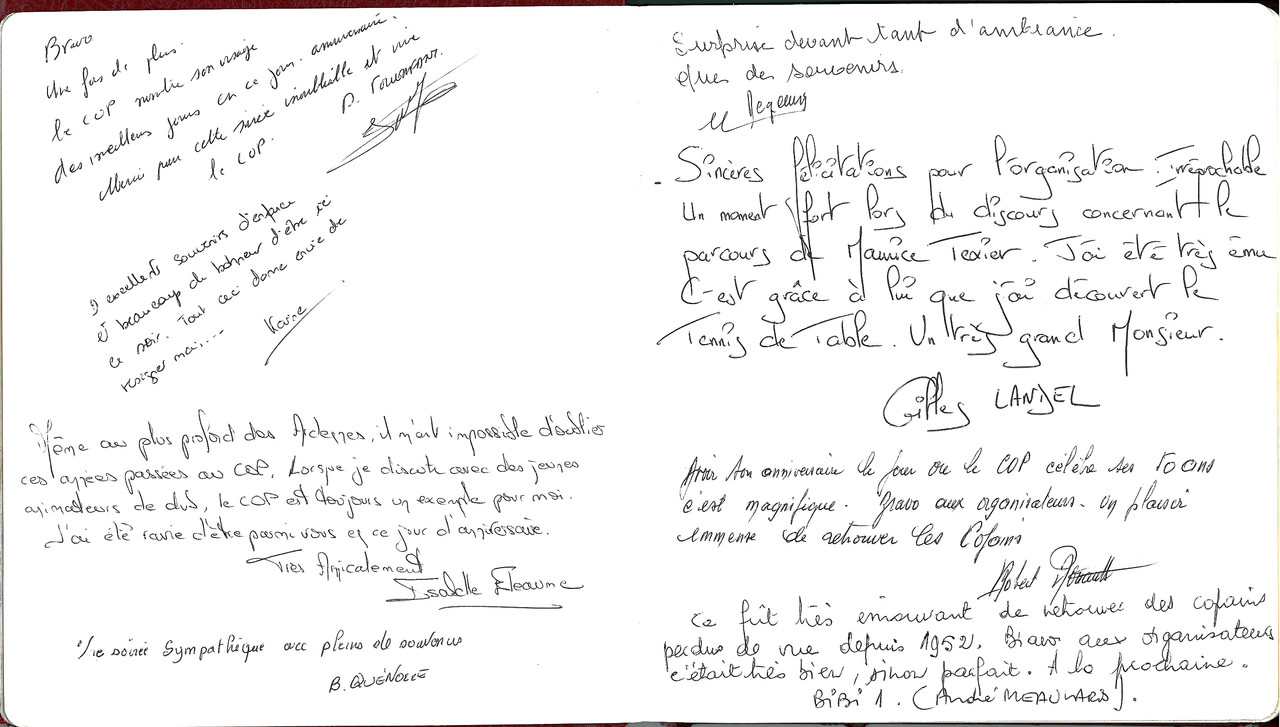 Bravo
Une fois de plus.
le COP montre son visage
des meilleurs jours en ce jour anniversaire.
Merci pour cette soirée inoubliable et vive
le COP.
D. 
D'excellents souvenirs d'enfance
et beaucoup de bonheur d'être ici
ce soir. Tout ceci donne envie de
resigner moi....
Karine
Même au plus profond des Ardennes, il m'est impossible d'oublier
ces années passées au COP. Lorsque je discute avec des jeunes
animateurs de club, le COP est toujours un exemple pour moi.
J'ai été ravie d'être parmi vous en ce jour d'anniversaire.
Très Amicalement
Isabelle
soirée sympathique avec pleins de souvenirs
B. QUÉNOLLE
Surprise devant tant d'ambiance.
que des souvenirs.
Sincères félicitations pour l'organisation irréprochable
Un moment fort lors du discours concernant le
parcours de Maurice Texier. J'ai été très ému
C'est grâce à lui que j'ai découvert le
Tennis de Table. Un très grand Monsieur.
Gilles LANDEL
Avoir son anniversaire le jour ou le COP célèbre ses 70 ans
c'est magnifique. Bravo aux organisateurs. Un plaisir
immense de retrouver les Copains
Robert
Ce fût très émouvant de retrouver des copains
perdus de vue depuis 1952. Bravo aux organisateurs
c'était très bien, sinon parfait. A la prochaine.
BiBi 1. (André MEAULARD).